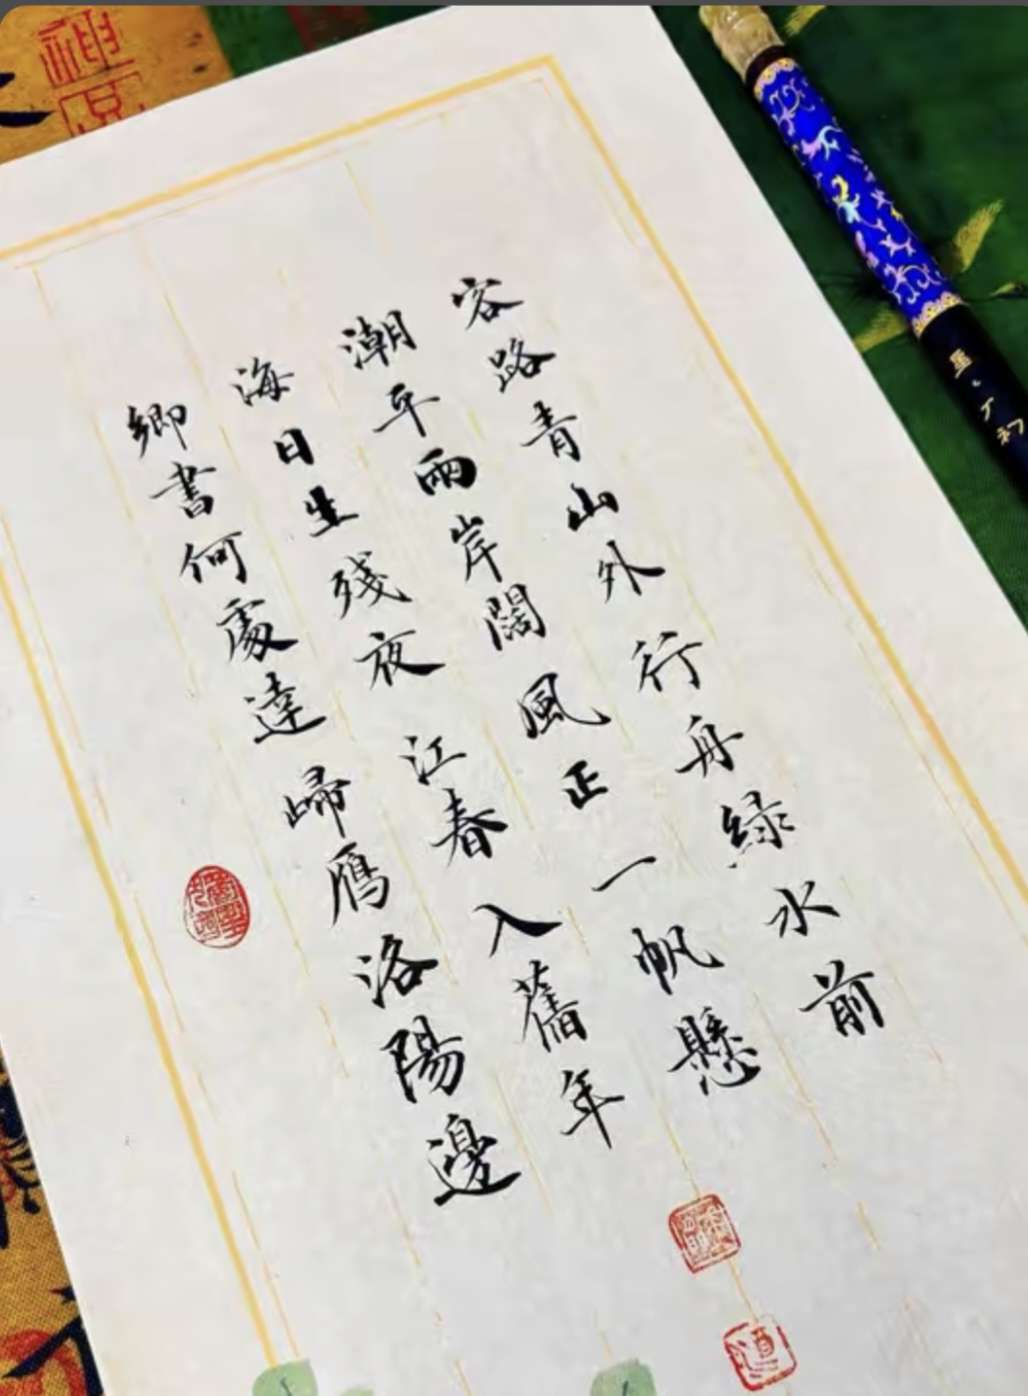 客路青山外行舟緑水前
潮平兩岸闊風正一帆懸
海日生殘夜江春入舊年
鄉書何處達歸鴈洛陽邊